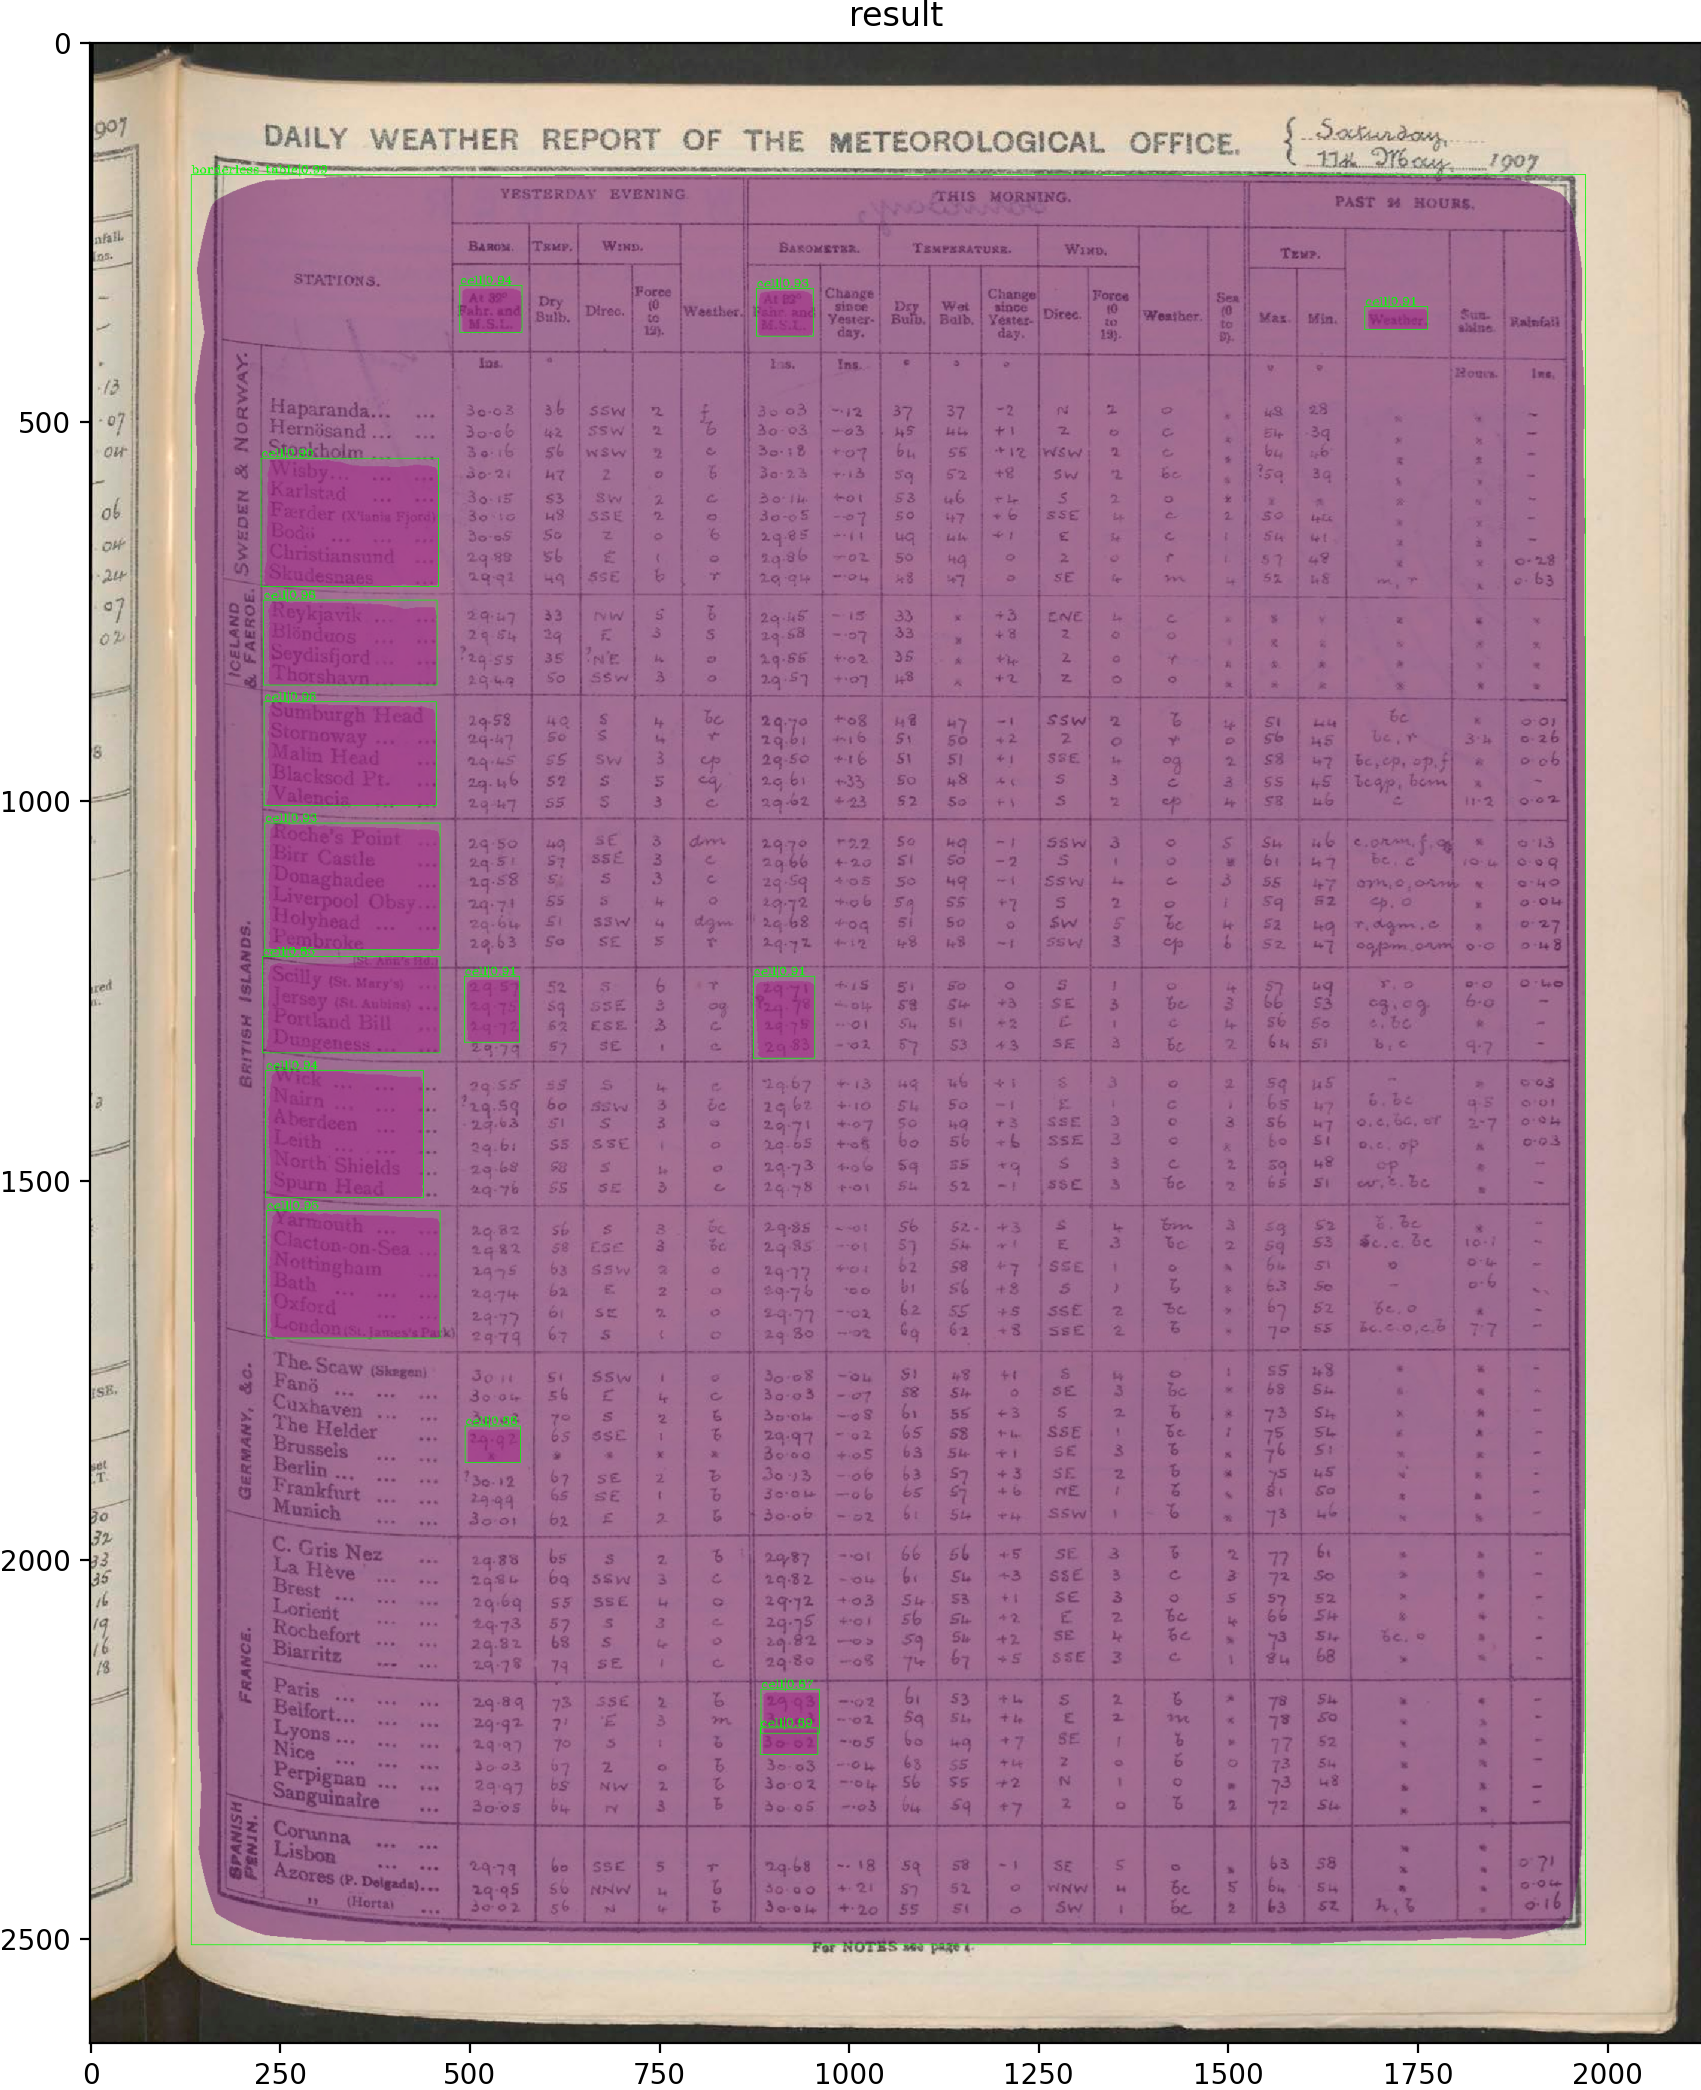 result
DAILY WEATHER REPORT OF THE METEOROLOGICAL OFFICE. { Saturday,
11th May, 1907
YESTERDAY EVENING THIS MORNING. PAST 24 HOURS.
BAROM. TEMP. WIND. BAROMETER. TEMPERATURE. WIND. TEMP.
STATIONS. At 32° Fahr. and M.S.L. Dry Bulb. Direc. Force (0 to 12). Weather. At 32° Fahr. and M.S.L. Change since Yester-day. Dry Bulb. Wet Bulb. Change since Yester-day. Direc. Force (0 to 12). Weather. Sea (0 to 9). Max. Min. Weather. Sun-shine. Rainfall
Ins. ° Ins. Ins. ° ° ° ° ° Hours. Ins.
SWEDEN & NORWAY.
Haparanda... ... 30·03 36 SSW 2 30·03 -·12 37 37 -2 N 2 o 48 28
Hernösand ... ... 30·06 42 SSW 2 b 30·03 -·03 45 44 +1 Z 0 c 54 39
Stockholm ... 30·16 56 WSW 2 c 30·18 +·07 64 55 +12 WSW 2 c 64 46
Wisby... ... 30·21 47 Z 0 b 30·23 +·13 59 52 +8 SW 2 bc ?59 39
Karlstad ... ... 30·15 53 SW 2 c 30·14 +·01 53 46 +4 S 2 o
Færder (X'iania Fjord) 30·10 48 SSE 2 o 30·05 -·07 50 47 +6 SSE 4 c 2 50 44
Bodö ... ... ... 30·05 50 Z 0 b 29·85 -·11 49 44 +1 E 4 c 1 54 41
Christiansund ... 29·88 56 E 1 o 29·86 -·02 50 49 0 Z 0 r 1 57 48 0·28
Skudesnaes ... 29·92 49 SSE 6 r 29·94 -·04 48 47 0 SE 4 m 4 52 48 m, r 0·63
ICELAND & FAEROE.
Reykjavik ... ... 29·47 33 NW 5 b 29·45 -·15 33 +3 ENE 4 c
Blönduos ... ... 29·54 29 E 3 s 29·58 -·07 33 +8 Z 0 o
Seydisfjord ... ... ?29·55 35 ?NE 4 o 29·55 +·02 35 +4 Z 0 r
Thorshavn ... ... 29·49 50 SSW 3 o 29·57 +·07 48 +2 Z 0 o
BRITISH ISLANDS.
Sumburgh Head 29·58 49 S 4 bc 29·70 +·08 48 47 -1 SSW 2 b 4 51 44 bc 0·01
Stornoway ... ... 29·47 50 S 4 r 29·61 +·16 51 50 +2 Z 0 r 0 56 45 bc, r 3·4 0·26
Malin Head ... 29·45 55 SW 3 cp 29·50 +·16 51 51 +1 SSE 4 og 2 58 47 bc, cp, op, f 0·06
Blacksod Pt. ... 29·46 52 S 5 cq 29·61 +·33 50 48 +1 S 3 c 3 55 45 bcqp, bcm -
Valencia ... 29·47 55 S 3 c 29·62 +·23 52 50 +1 S 2 cp 4 58 46 c 11·2 0·02
Roche's Point ... 29·50 49 SE 3 dm 29·70 +·22 50 49 -1 SSW 3 o 5 54 46 0·13
Birr Castle ... 29·51 57 SSE 3 c 29·66 +·20 51 50 -2 S 1 o 61 47 bc, c 10·4 0·09
Donaghadee ... 29·58 S 3 c 29·59 +·05 50 49 -1 SSW 4 c 3 55 47 om, o, orm 0·40
Liverpool Obsy... 29·71 55 S 4 o 29·72 +·06 59 55 +7 S 2 o 1 59 52 cp, o 0·04
Holyhead ... 29·64 51 SSW 4 dgm 29·68 +·09 51 50 0 SW 5 bc 4 52 49 r, dgm, c 0·27
Pembroke ... 29·63 50 SE 5 r 29·72 +·12 48 48 -1 SSW 3 cp 6 52 47 ogpm, orm 0·0 0·48
(St. Ann's Hd.)
Scilly (St. Mary's) ... 29·57 52 S 6 r 29·71 +·15 51 50 0 S 1 o 4 57 49 r, o 0·0 0·40
Jersey (St. Aubins) ... 29·75 59 SSE 3 og ?29·78 -·04 58 54 +3 SE 3 bc 3 66 53 og, og 6·0 -
Portland Bill ... 29·72 52 ESE 3 c 29·75 -·01 54 51 +2 E 1 c 4 56 50 c, bc -
Dungeness ... ... 29·79 57 SE 1 c 29·83 -·02 57 53 +3 SE 3 bc 2 64 51 b, c 9·7 -
Wick ... ... ... 29·55 55 S 4 c 29·67 +·13 49 46 +1 S 3 o 2 59 45 - 0·03
Nairn ... ... ... ?29·59 60 SSW 3 bc 29·62 +·10 54 50 -1 E 1 c 1 65 47 b, bc 9·5 0·01
Aberdeen ... ... 29·63 51 S 3 o 29·71 +·07 50 49 +3 SSE 3 o 3 56 47 o, c, bc, or 2·7 0·04
Leith ... ... ... 29·61 55 SSE 1 o 29·65 +·08 60 56 +6 SSE 3 o 60 51 o, c, op 0·03
North Shields ... 29·68 58 S 4 o 29·73 +·06 59 55 +9 S 3 c 2 59 48 op -
Spurn Head ... 29·76 55 SE 3 c 29·78 +·01 54 52 -1 SSE 3 bc 2 65 51 -
Yarmouth ... ... 29·82 56 S 3 bc 29·85 -·01 56 52 +3 S 4 bm 3 59 52 b, bc -
Clacton-on-Sea ... 29·82 58 ESE 3 bc 29·85 -·01 57 54 +1 E 3 bc 2 59 53 bc, c, bc 10·1 -
Nottingham ... 29·75 63 SSW 2 o 29·77 +·01 62 58 +7 SSE 1 o 64 51 o 0·4 -
Bath ... ... ... 29·74 62 E 2 o 29·76 ·00 61 56 +8 S 1 b 63 50 - 0·6 -
Oxford ... ... 29·77 61 SE 2 o 29·77 -·02 62 55 +5 SSE 2 bc 67 52 bc, o -
London (St. James's Park) 29·79 67 S 1 o 29·80 -·02 69 62 +8 SSE 2 b 70 55 bc, c, o, c, b 7·7 -
GERMANY, &c.
The Scaw (Skagen) 30·11 51 SSW 1 o 30·08 -·04 51 48 +1 S 4 o 1 55 48
Fanö ... ... ... 30·04 56 E 4 c 30·03 -·07 58 54 0 SE 3 bc 68 54
Cuxhaven ... ... 70 S 2 b 30·04 -·08 61 55 +3 S 2 b 73 54
The Helder ... 29·92 65 SSE 1 b 29·97 -·02 65 58 +4 SSE 1 bc 1 75 54
Brussels ... ... 30·00 +·05 63 54 +1 SE 3 b 76 51
Berlin ... ... ... ?30·12 67 SE 2 b 30·13 -·06 63 57 +3 SE 2 b 75 45
Frankfurt ... ... 29·99 65 SE 1 b 30·04 -·06 65 57 +6 NE 1 b 81 50
Munich ... ... 30·01 62 E 2 b 30·06 -·02 61 54 +4 SSW 1 b 73 46
FRANCE.
C. Gris Nez ... 29·88 65 S 2 b 29·87 -·01 66 56 +5 SE 3 b 2 77 61
La Hève ... ... 29·84 69 SSW 3 c 29·82 -·04 61 54 +3 SSE 3 c 3 72 50
Brest ... ... ... 29·69 55 SSE 4 o 29·72 +·03 54 53 +1 SE 3 o 5 57 52
Lorient ... ... 29·73 57 S 3 c 29·75 +·01 56 54 +2 E 2 bc 4 66 54
Rochefort ... ... 29·82 68 S 4 o 29·82 59 54 +2 SE 4 bc 73 54 bc, o
Biarritz ... ... 29·78 79 SE 1 c 29·80 -·08 74 67 +5 SSE 3 c 1 84 68
Paris ... ... ... 29·89 73 SSE 2 b 29·93 -·02 61 53 +4 S 2 b 78 54
Belfort... ... ... 29·92 71 E 3 m -·02 59 54 +4 E 2 m 78 50
Lyons ... ... ... 29·97 70 S 1 b 30·02 -·05 60 49 +7 SE 1 b 77 52
Nice ... ... ... 30·03 67 Z 0 b 30·03 -·04 68 55 +4 Z 0 b 0 73 54
Perpignan ... ... 29·97 65 NW 2 b 30·02 -·04 56 55 +2 N 1 o 73 48
Sanguinaire ... 30·05 64 N 3 b 30·05 -·03 64 59 +7 Z 0 b 2 72 54
SPANISH PENIN.
Corunna ... ...
Lisbon ... ... 29·79 60 SSE 5 r 29·68 -·18 59 58 -1 SE 5 o 63 58 0·71
Azores (P. Delgada)... 29·95 56 NNW 4 b 30·00 +·21 57 52 0 WNW 4 bc 5 64 54 0·04
" (Horta) ... 30·02 56 N 4 b 30·04 +·20 55 51 0 SW 1 bc 2 63 52 h, b 0·16
For NOTES see page 1.
0
500
1000
1500
2000
2500
0 250 500 750 1000 1250 1500 1750 2000